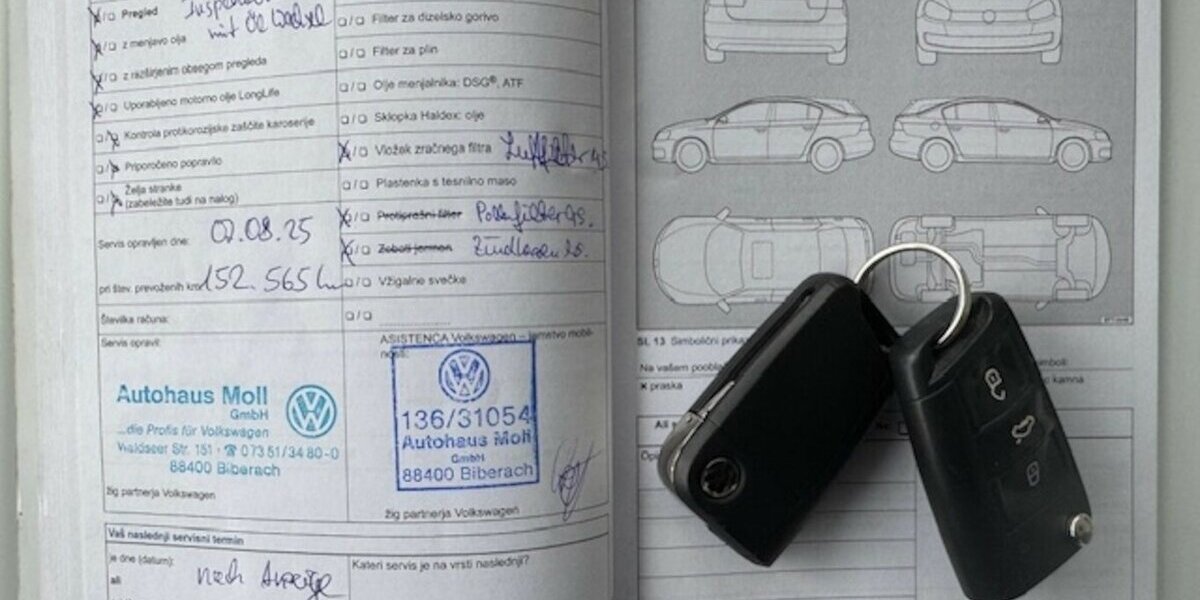 Pregled Inspektion
mit Öl Wechsel
z menjavo olja
z razširjenim obsegom pregleda
Uporabljeno motorno olje LongLife
Kontrola protikorozijske zaščite karoserije
Priporočeno popravilo
Želja stranke
(zabeležite tudi na nalog)
Servis opravljen dne: 07.08.25
pri štev. prevoženih km 152.565
Številka računa:
Servis opravil:
Autohaus Moll
GmbH
...die Profis für Volkswagen
Waldseer Str. 151 · ☎ 073 51/34 80-0
88400 Biberach
žig partnerja Volkswagen
Vaš naslednji servisni termin
je dne (datum):
ali
nach Anzeige
Filter za dizelsko gorivo
Filter za plin
Olje menjalnika: DSG®, ATF
Sklopka Haldex: olje
Vložek zračnega filtra Luftfilter
Plastenka s tesnilno maso
Protiprašni filter Pollenfilter
Zobati jermen
Vžigalne svečke
ASISTENCA Volkswagen – jamstvo mobil-
nosti:
136/31054
Autohaus Moll
GmbH
88400 Biberach
žig partnerja Volkswagen
Kateri servis je na vrsti naslednji?
SL 13 Simbolični
Na vašem
x praska
kamna